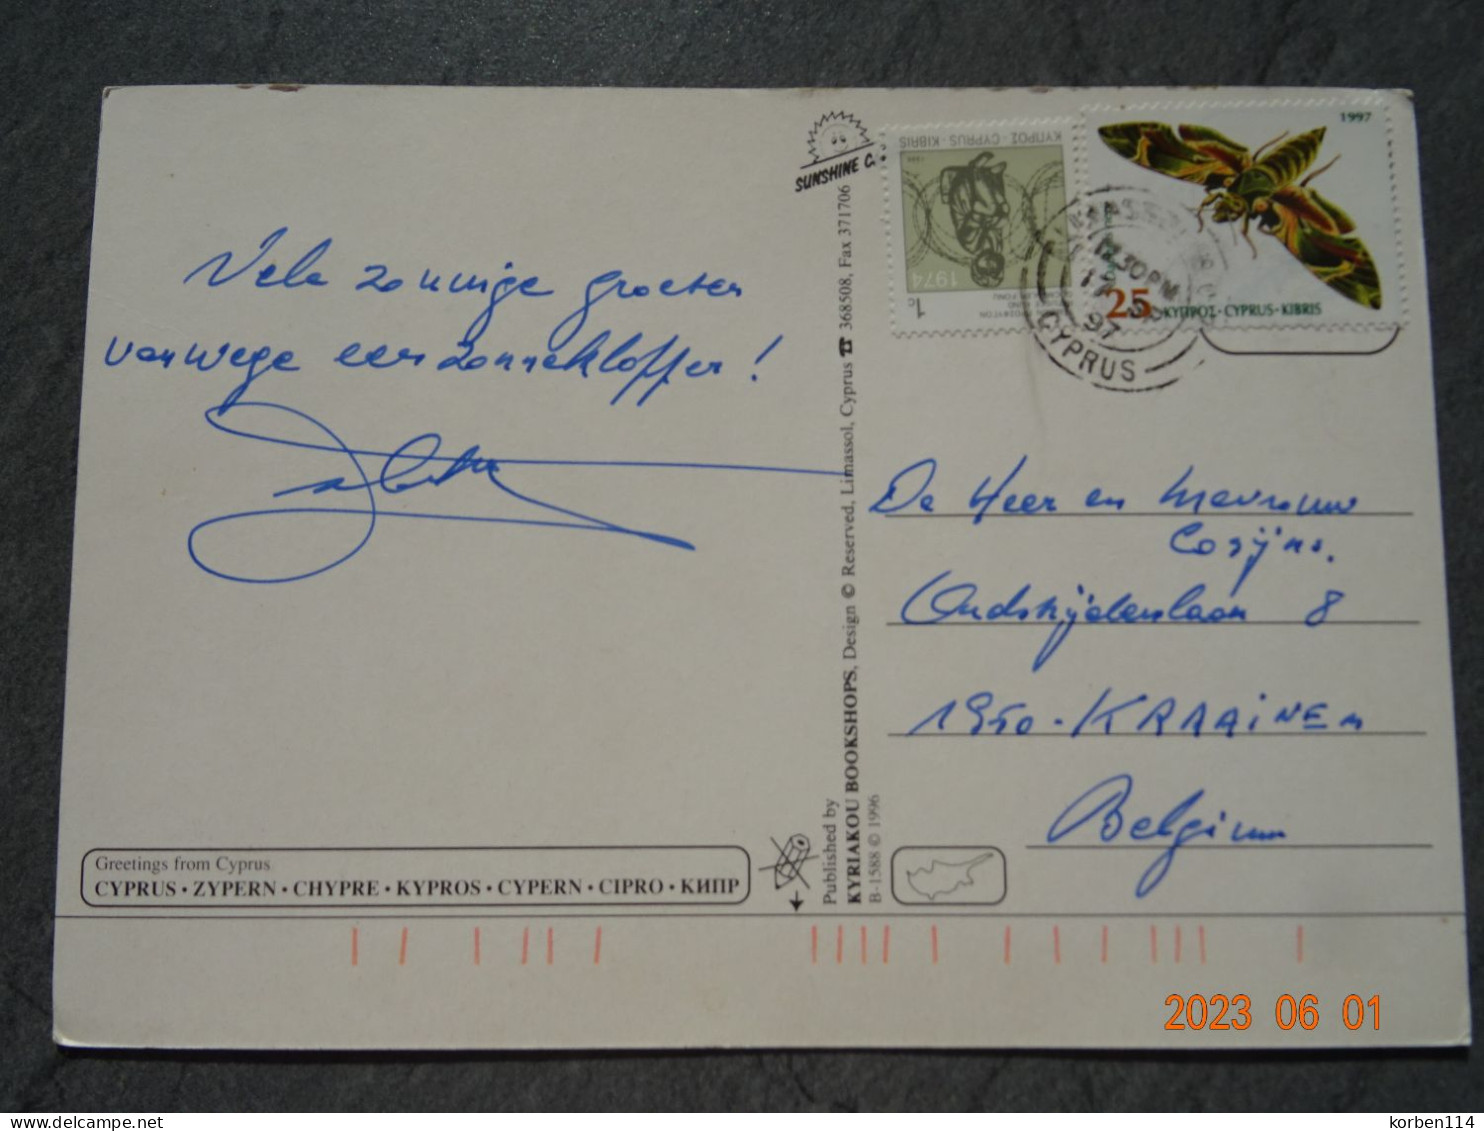 SUNSHINE C.
ΚΥΠΡΟΣ - CYPRUS - KIBRIS
1974
1c
1997
25
ΚΥΠΡΟΣ · CYPRUS · KIBRIS
12.30 PM
17
97
CYPRUS
Vele zonnige groeten
vanwege een zonneklopper!
De Heer en Mevrouw
Cosÿns.
Oudstrÿderslaan 8
1950 - KRAAINEM
Belgium
Published by
KYRIAKOU BOOKSHOPS, Design © Reserved, Limassol, Cyprus ☎ 368508, Fax 371706
B-1588 © 1996
Greetings from Cyprus
CYPRUS · ZYPERN · CHYPRE · KYPROS · CYPERN · CIPRO · КИПР
2023 06 01
korben114